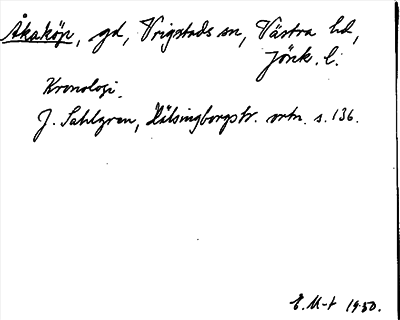 Åkaköp, gd, Vrigstads sn, Västra hd,
Jönk. l.
Kronologi.
J. Sahlgren, Hälsingborgstr. ortn. s. 136.
E. M-t 1950.